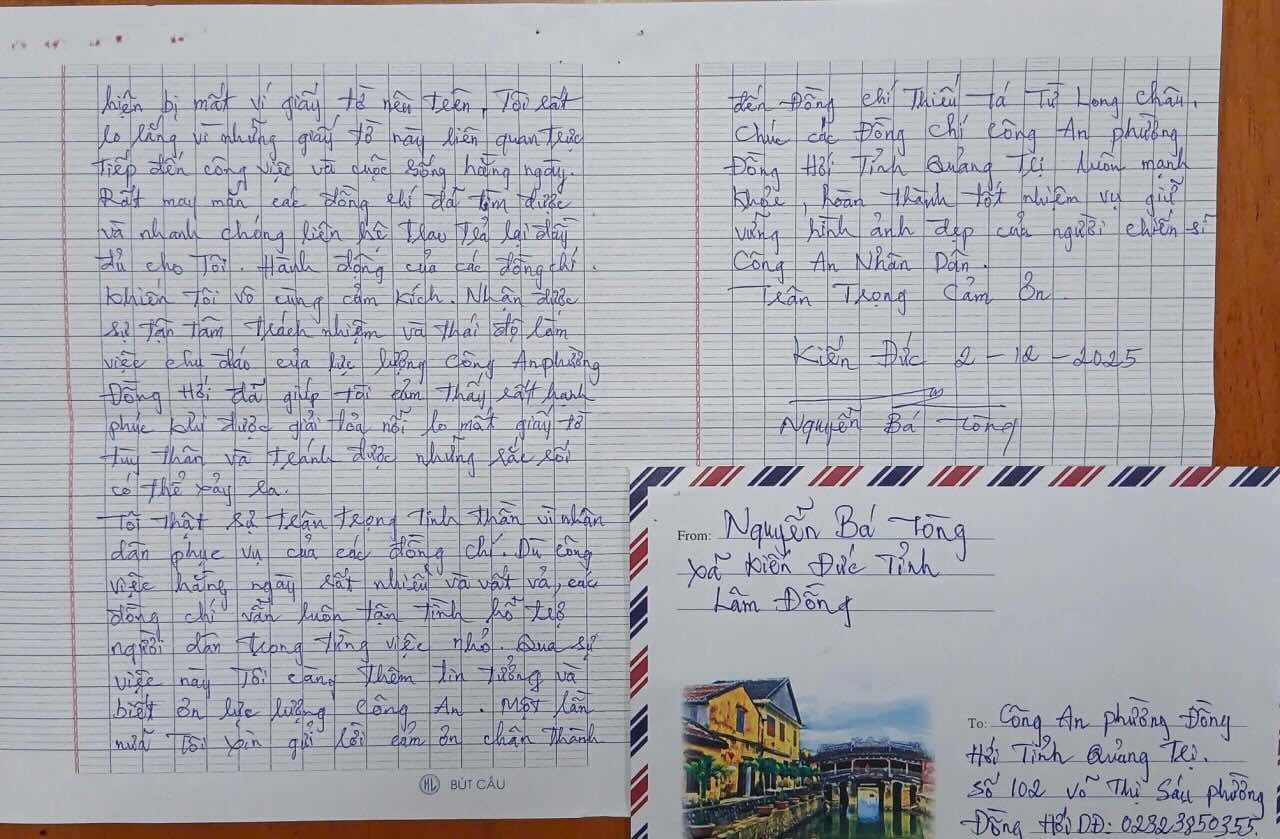 hiện bị mất ví giấy tờ nêu trên, Tôi rất
lo lắng vì những giấy tờ này liên quan trực
tiếp đến công việc và cuộc sống hằng ngày.
Rất may mắn các đồng chí đã tìm được
và nhanh chóng liên hệ trao trả lại đầy
đủ cho Tôi. Hành động của các đồng chí.
Khiến Tôi vô cùng cảm kích. Nhận được
sự tận tâm trách nhiệm và thái độ làm
việc chu đáo của lực lượng Công An phường
Đồng Hới đã giúp tôi cảm thấy rất hanh
phúc khi được giải tỏa nỗi lo mất giấy tờ
tùy thân và tránh được những rắc rối
có thể xảy ra.
Tôi thật sự trân trọng tinh thần vì nhân
dân phục vụ của các đồng chí. Dù công
việc hằng ngày rất nhiều và vất vả, các
đồng chí vẫn luôn tận tình hỗ trợ
người dân trong từng việc nhỏ. Qua sự
việc này Tôi càng thêm tin tưởng và
biết ơn lực lượng Công An. Một lần
nữa Tôi xin gửi lời cảm ơn chân thành
HL BÚT CÂU
đến Đồng chí Thiếu tá Từ Long Châu.
Chúc các Đồng chí Công An phường
Đồng Hới Tỉnh Quảng Trị luôn mạnh
khỏe, hoàn thành tốt nhiệm vụ giữ
vững hình ảnh đẹp của người chiến sĩ
Công An Nhân Dân.
Trân Trọng Cảm Ơn
Kiến Đức 2-12-2025
Nguyễn Bá Tòng
From: Nguyễn Bá Tòng
Xã Kiến Đức Tỉnh
Lâm Đồng
To: Công An phường Đồng
Hới Tỉnh Quảng Trị.
Số 102 Võ Thị Sáu phường
Đồng Hới DĐ: 02323850355.